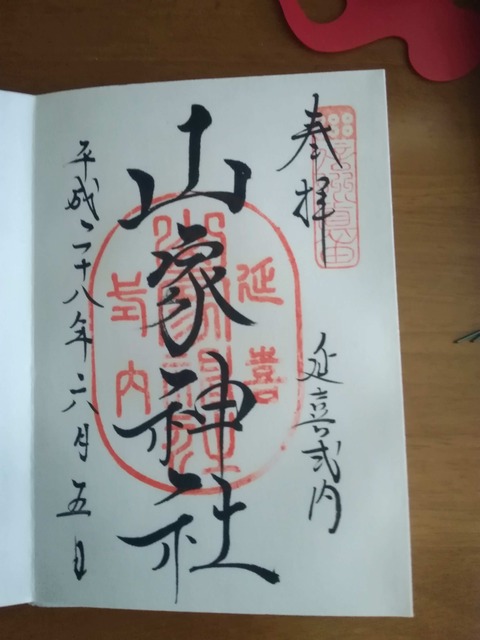 奉拝
延喜式内
山家神社
平成二十八年六月五日
延喜
式内
山家神社
信州真田